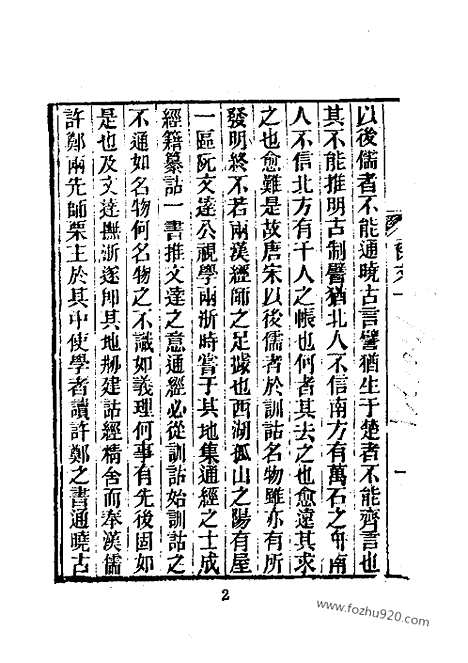 以後儒者不能通曉古言譬猶生于楚者不能齊言也
其不能推明古制譬猶北人不信南方有萬石之舟南
人不信北方有千人之帳也何者其去之也愈遠其求
之也愈難是故唐宋以後儒者於訓詁名物雖亦有所
發明終不若兩漢經師之足據也西湖孤山之陽有屋
一區阮文達公視學兩浙時嘗于其地集通經之士成
經籍纂詁一書推文達之意通經必從訓詁始訓詁之
不通如名物何名物之不識如義理何事有先後固如
是也及文達撫浙遂卽其地剏建詁經精舍而奉漢儒
許鄭兩先師栗主於其中使學者讀許鄭之書通曉古
2
www.fozhu920.com